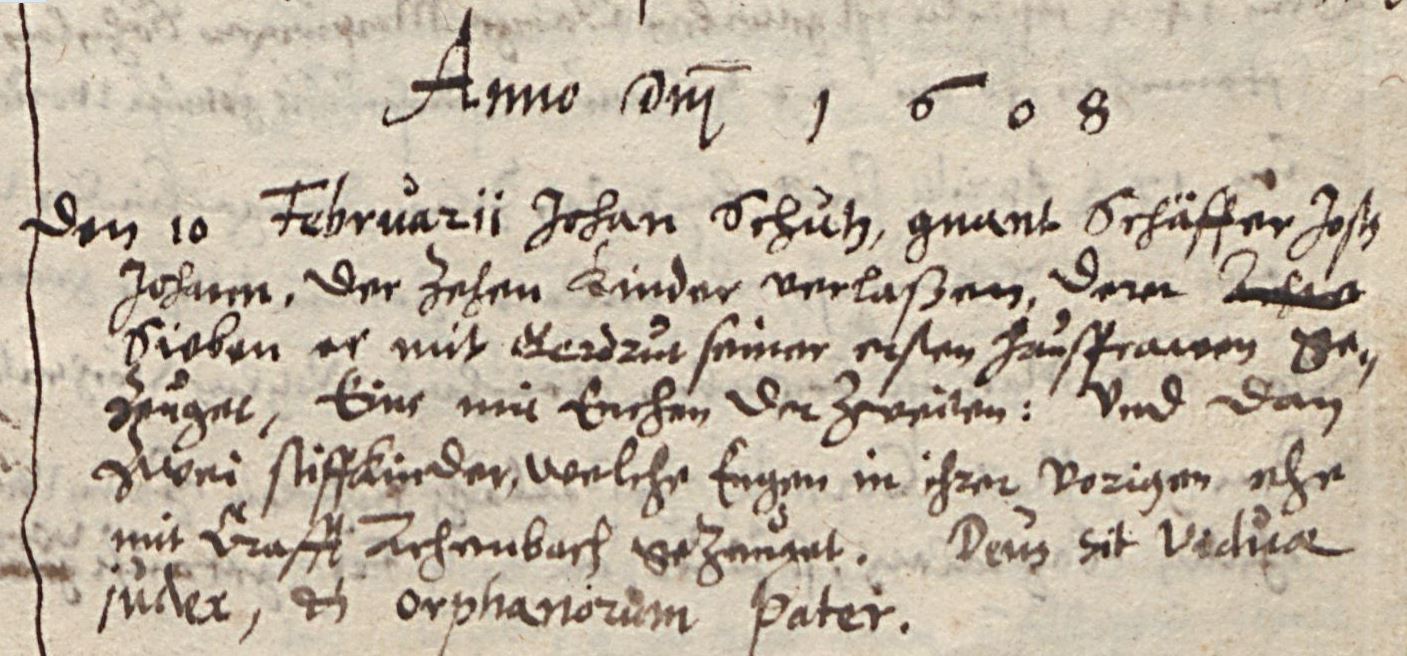 Anno Dm̄ 1608
Den 10 Februarii Johan Schütz, gnant Schäffer Josts
Johann, der zehen kinder verlaßen, deren
Sieben er mit Gerdrut seiner ersten haußfrawen ge„
zeuget, Eins mit Engen der zweiten: Und dan
zwei stiffkinder, welche Engen in ihrer vorigen ehe
mit Crafft Achenbach gezeuget. Deus sit viduæ
judex, et orphanorum pater.